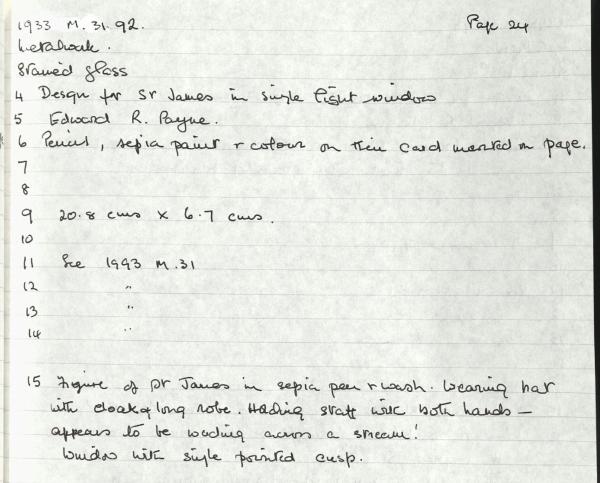 1933 M.31.92. Page 24
Metalwork.
Stained glass
4 Design for St James in single light window
5 Edward R. Payne.
6 Pencil, sepia paint & colour on thin card mounted on page.
7
8
9 20.8 cms x 6.7 cms.
10
11 See 1993 M.31
12 "
13 "
14 "
15 Figure of St James in sepia pen & wash. Wearing hat
with cloak & long robe. Holding staff with both hands –
appears to be wading across a stream!
Window with single pointed cusp.